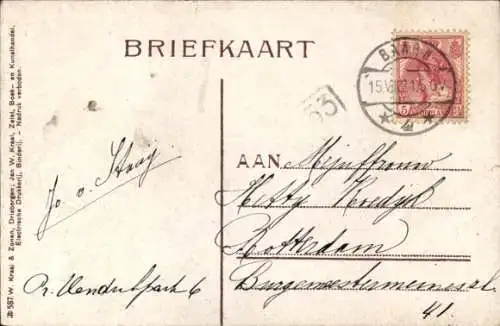 BRIEFKAART
BAARN
53
AAN Mejuffrouw
Hetty Hoedijk
Rotterdam
Burgemeestermeinesz st
41
Jo v. Staay
Pr. Hendrikpark 6
№ 587. W. Kraal & Zonen, Driebergen; Jan W. Kraal, Zeist, Boek- en Kunsthandel.
Electrische Drukkerij, Binderij. — Nadruk verboden.